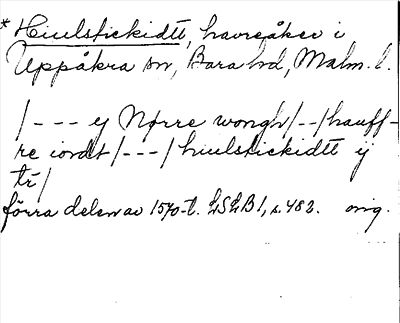 * Hiulstickidtt, havreåker i
Uppåkra sn, Bara hd, Malm. l.
/--- ej Nørre wongh/--/hauff-
re iordt/---/hiulstickidtt ij
tr/
förra delen av 1570-t. LSLB1, s. 482. orig.